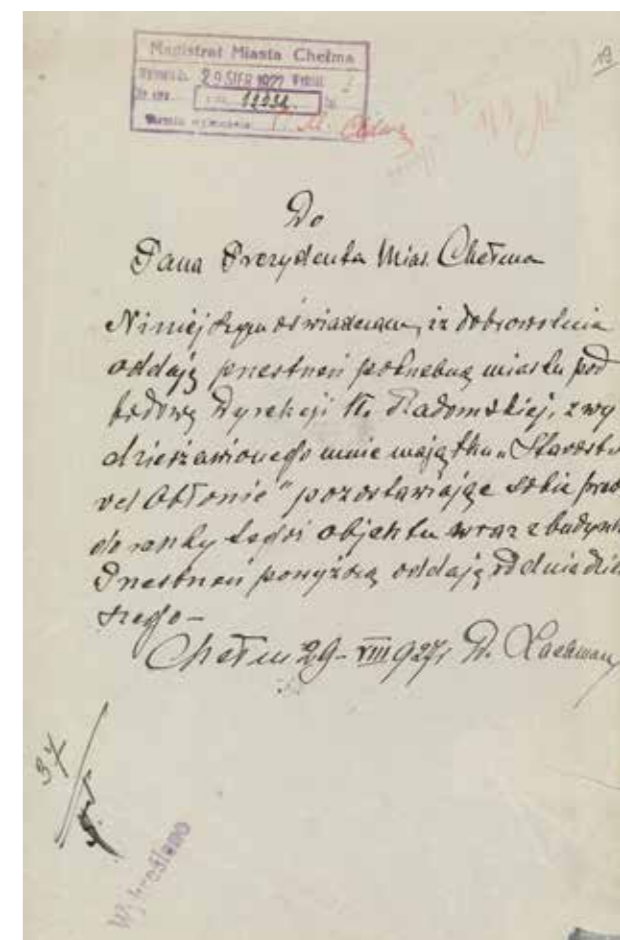 Magistrat Miasta Chełma
29 SIER 1927
12934
19
Do
Pana Prezydenta Mias. Chełma
Niniejszym oświadczam, iż dobrowolnie
oddaję przestrzeń potrzebną miastu pod
budowę Dyrekcji K. Radomskiej, z wy
dzierżawionego mnie majątku „Starostwo
vel Obłonie" pozostawiając sobie prawo
do renty tegoż objektu wraz z budynk
Przestrzeń powyższą oddaję od dnia dzi
szego –
Chełm 29 – VIII 927r
37
Wykreślano